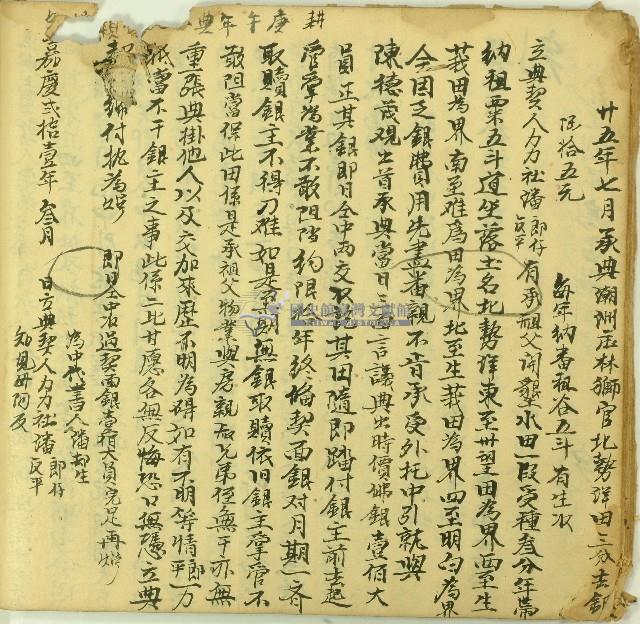 廿五年七月承典潮洲庄林獅官北勢洋田三分去銀
陸拾五元
每年納番租谷五斗有生水
立典契人力力社潘郎仔 反平 有承祖父開墾水田一段受種叁分年帶
納租粟五斗道坐落土名北勢洋東至卅望田為界西至生
莪田為界南至难為田為界北至生莪田為界四至明白為界
今因乏銀費用先盡番親不肯承受外托中引就與
陳德茂观出首承典當日三面言議典出時價佛銀壹佰大
員正其銀即日仝中兩交 其田隨即踏付銀主前去起
管掌為業不敢阻擋約限 年終備契面銀对月期一齊
取贖銀主不得刁难如是 無銀取贖依旧銀主掌管不
敢阻當保此田係是承祖父物業與房親叔兄弟侄無干亦無
重張典掛他人以及交加來歷不明為碍如有不明等情郎平一力
抵當不干銀主之事此係二比甘愿各無反悔恐口無憑立典
契 付执為炤
即日仝中收過契面銀壹佰大員完足再炤
為中代書人潘 生
嘉慶弍拾壹年叁月 日立典契人力力社潘郎仔 反平
知見 阿反
耕 庚午年典
國史館臺灣文獻館
TAIWAN HISTORICA